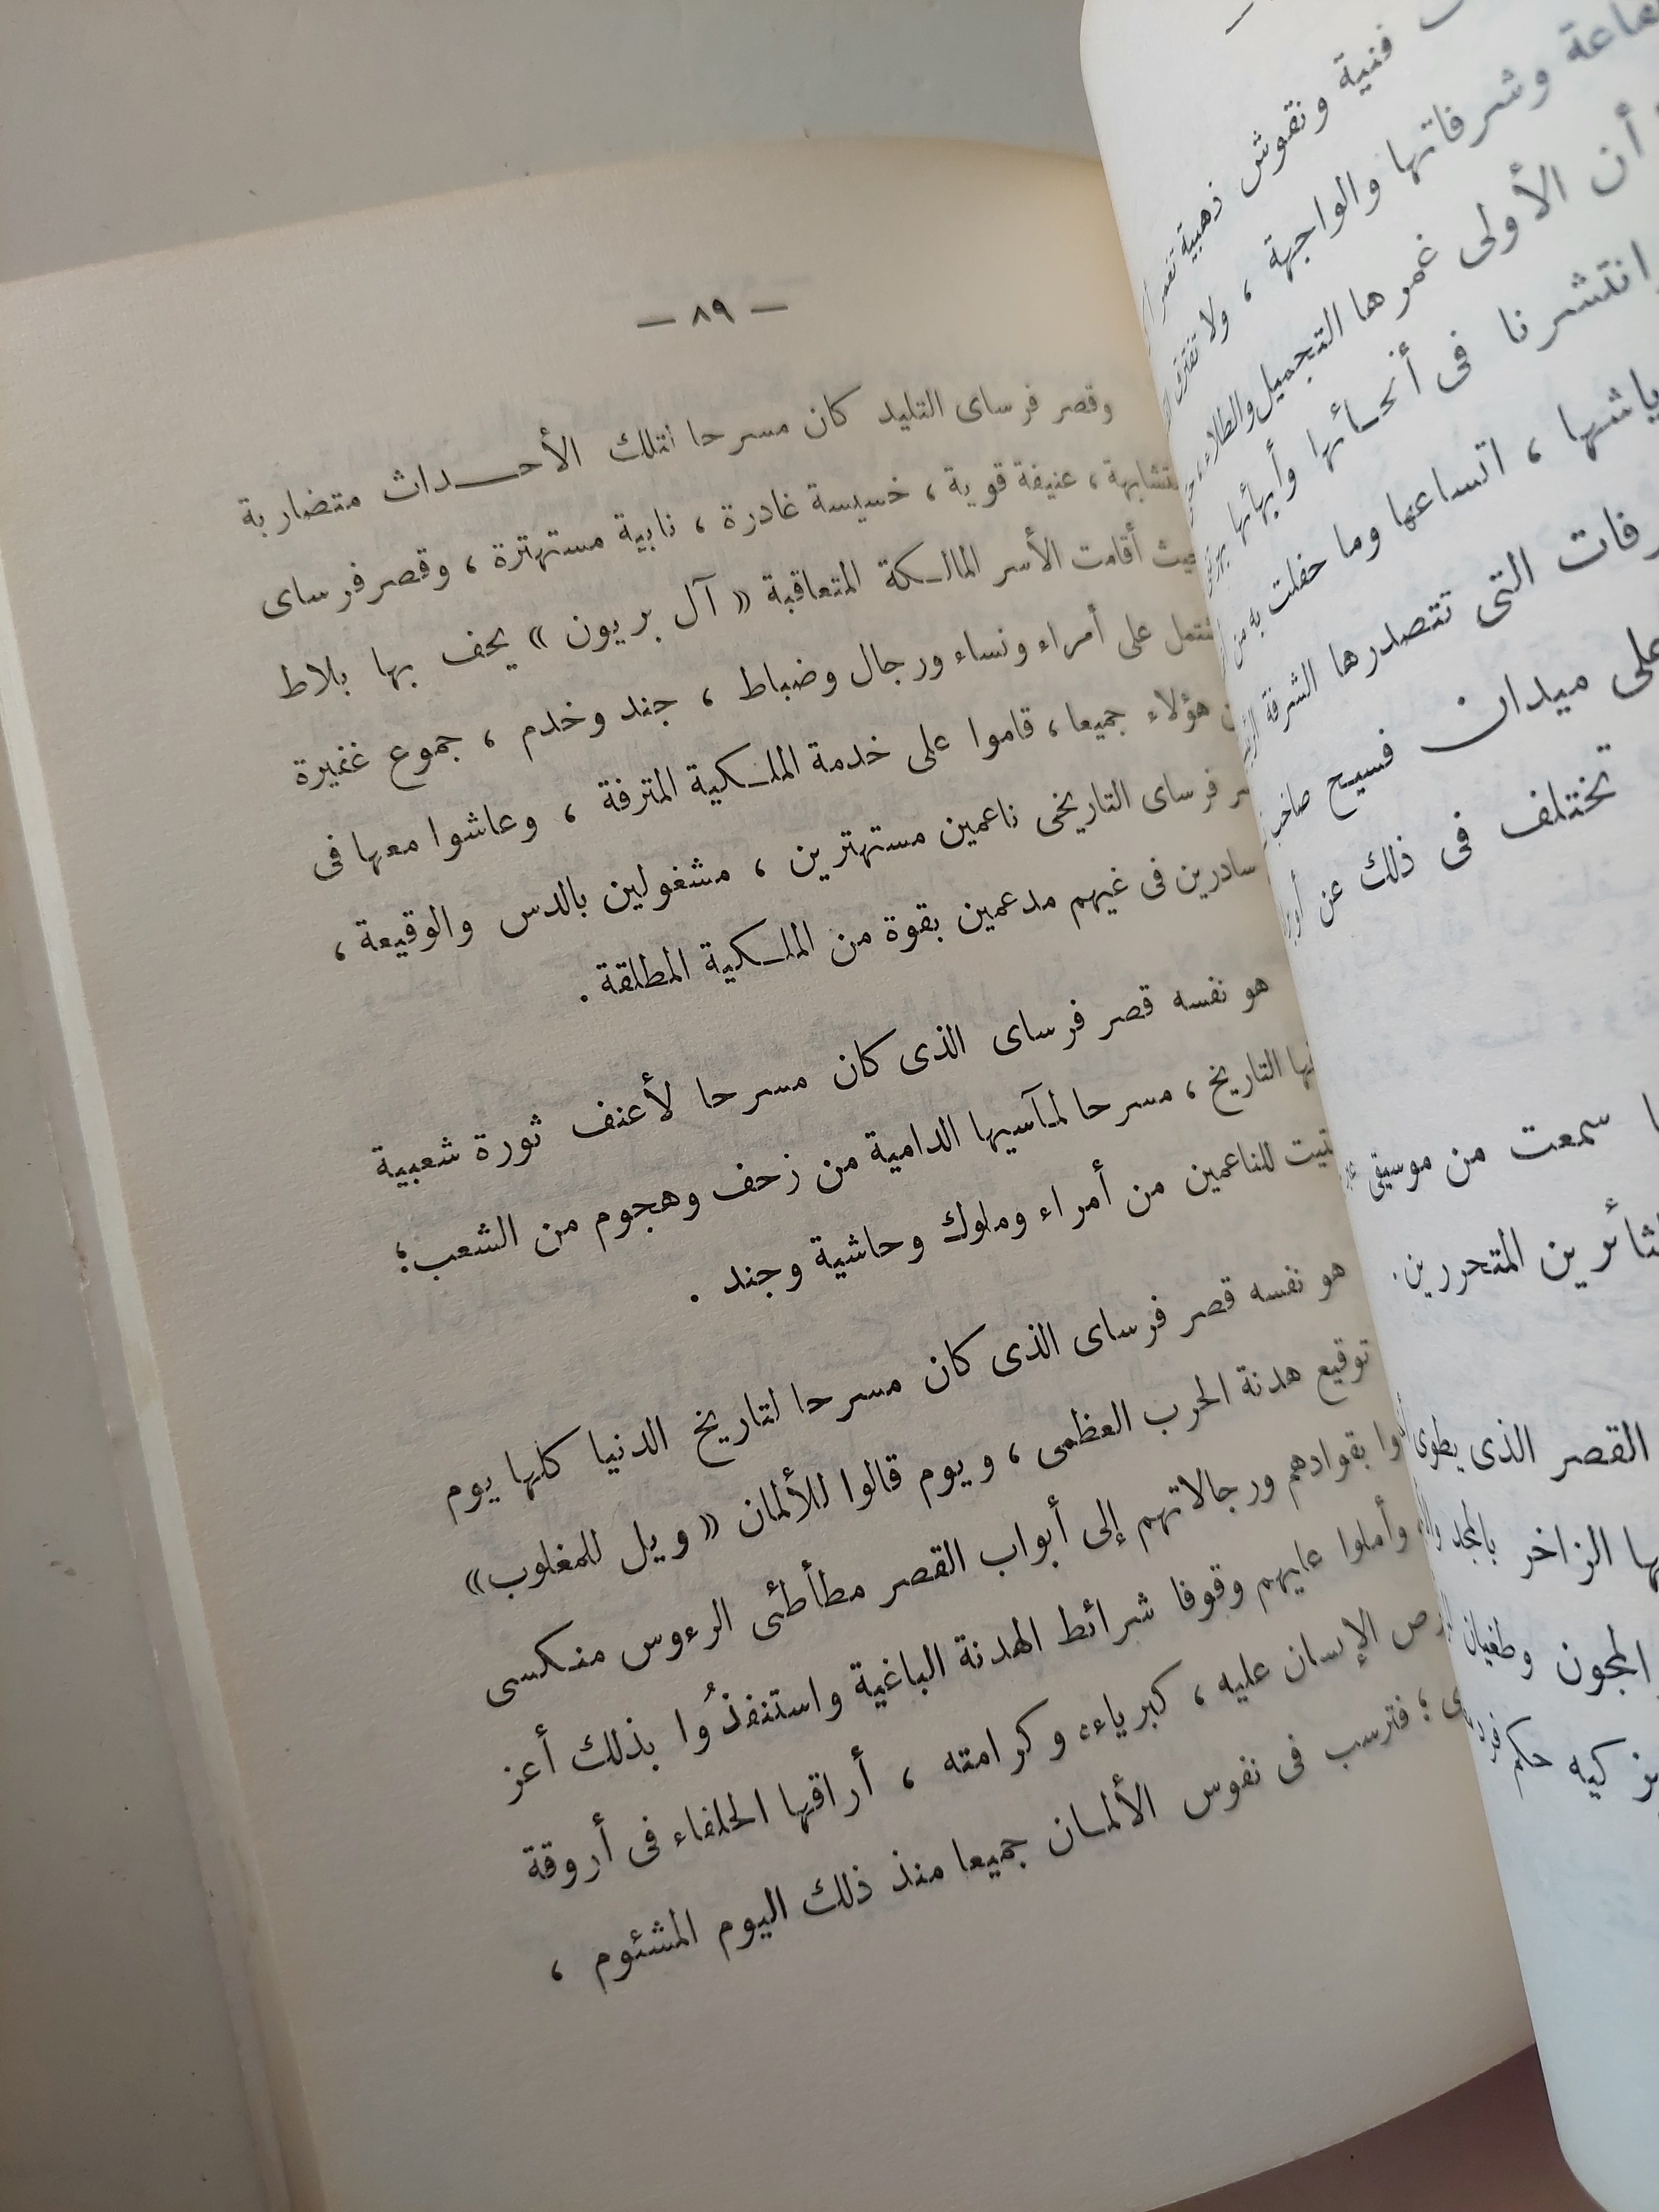 — ٨٩ —
وقصر فرساى التليد كان مسرحا لتلك الأحـــداث متضاربة
عنيفة قوية ، خسيسة غادرة ، نابية مستهترة ، وقصر فرساى
حيث أقامت الأسر المالـكة المتعاقبة « آل بربون » يحف بها بلاط
على أمراء ونساء ورجال وضباط ، جند وخدم ، جموع غفيرة
هؤلاء جميعا ، قاموا على خدمة الملـكية المترفة ، وعاشوا معها فى
فرساى التاريخى ناعمين مستهترين ، مشغولين بالدس والوقيعة ،
سادرين فى غيهم مدعمين بقوة من الملـكية المطلقة .
هو نفسه قصر فرساى الذى كان مسرحا لأعنف ثورة شعبية
التاريخ ، مسرحا لمآسيها الدامية من زحف وهجوم من الشعب ؛
للناعمين من أمراء وملوك وحاشية وجند .
هو نفسه قصر فرساى الذى كان مسرحا لتاريخ الدنيا كلها يوم
توقيع هدنة الحرب العظمى ، ويوم قالوا للألمان « ويل للمغلوب »
بقوادهم ورجالاتهم إلى أبواب القصر مطأطئى الرءوس منـكسى
وأملوا عليهم وقوفا شرائط الهدنة الباغية واستنفذُوا بذلك أعز
الإنسان عليه ، كبرياءه وكرامته ، أراقها الحلفاء فى أروقة
؛ فترسب فى نفوس الألمـان جميعا منذ ذلك اليوم المشئوم ،
فنية ونقوش ذهبية
وشرفاتها والواجهة ، ولا تفترق
أن الأولى غمرها التجميل والطلاء
انتشرنا فى أنحـائها وأبهائها
، اتساعها وما حفلت به من
التى تتصدرها الشرفة
على ميدان فسيح
تختلف فى ذلك عن
سمعت من موسيقى
المتحررين .
القصر الذى يطوى
الزاخر بالمجد
المجون وطغيان
حكم